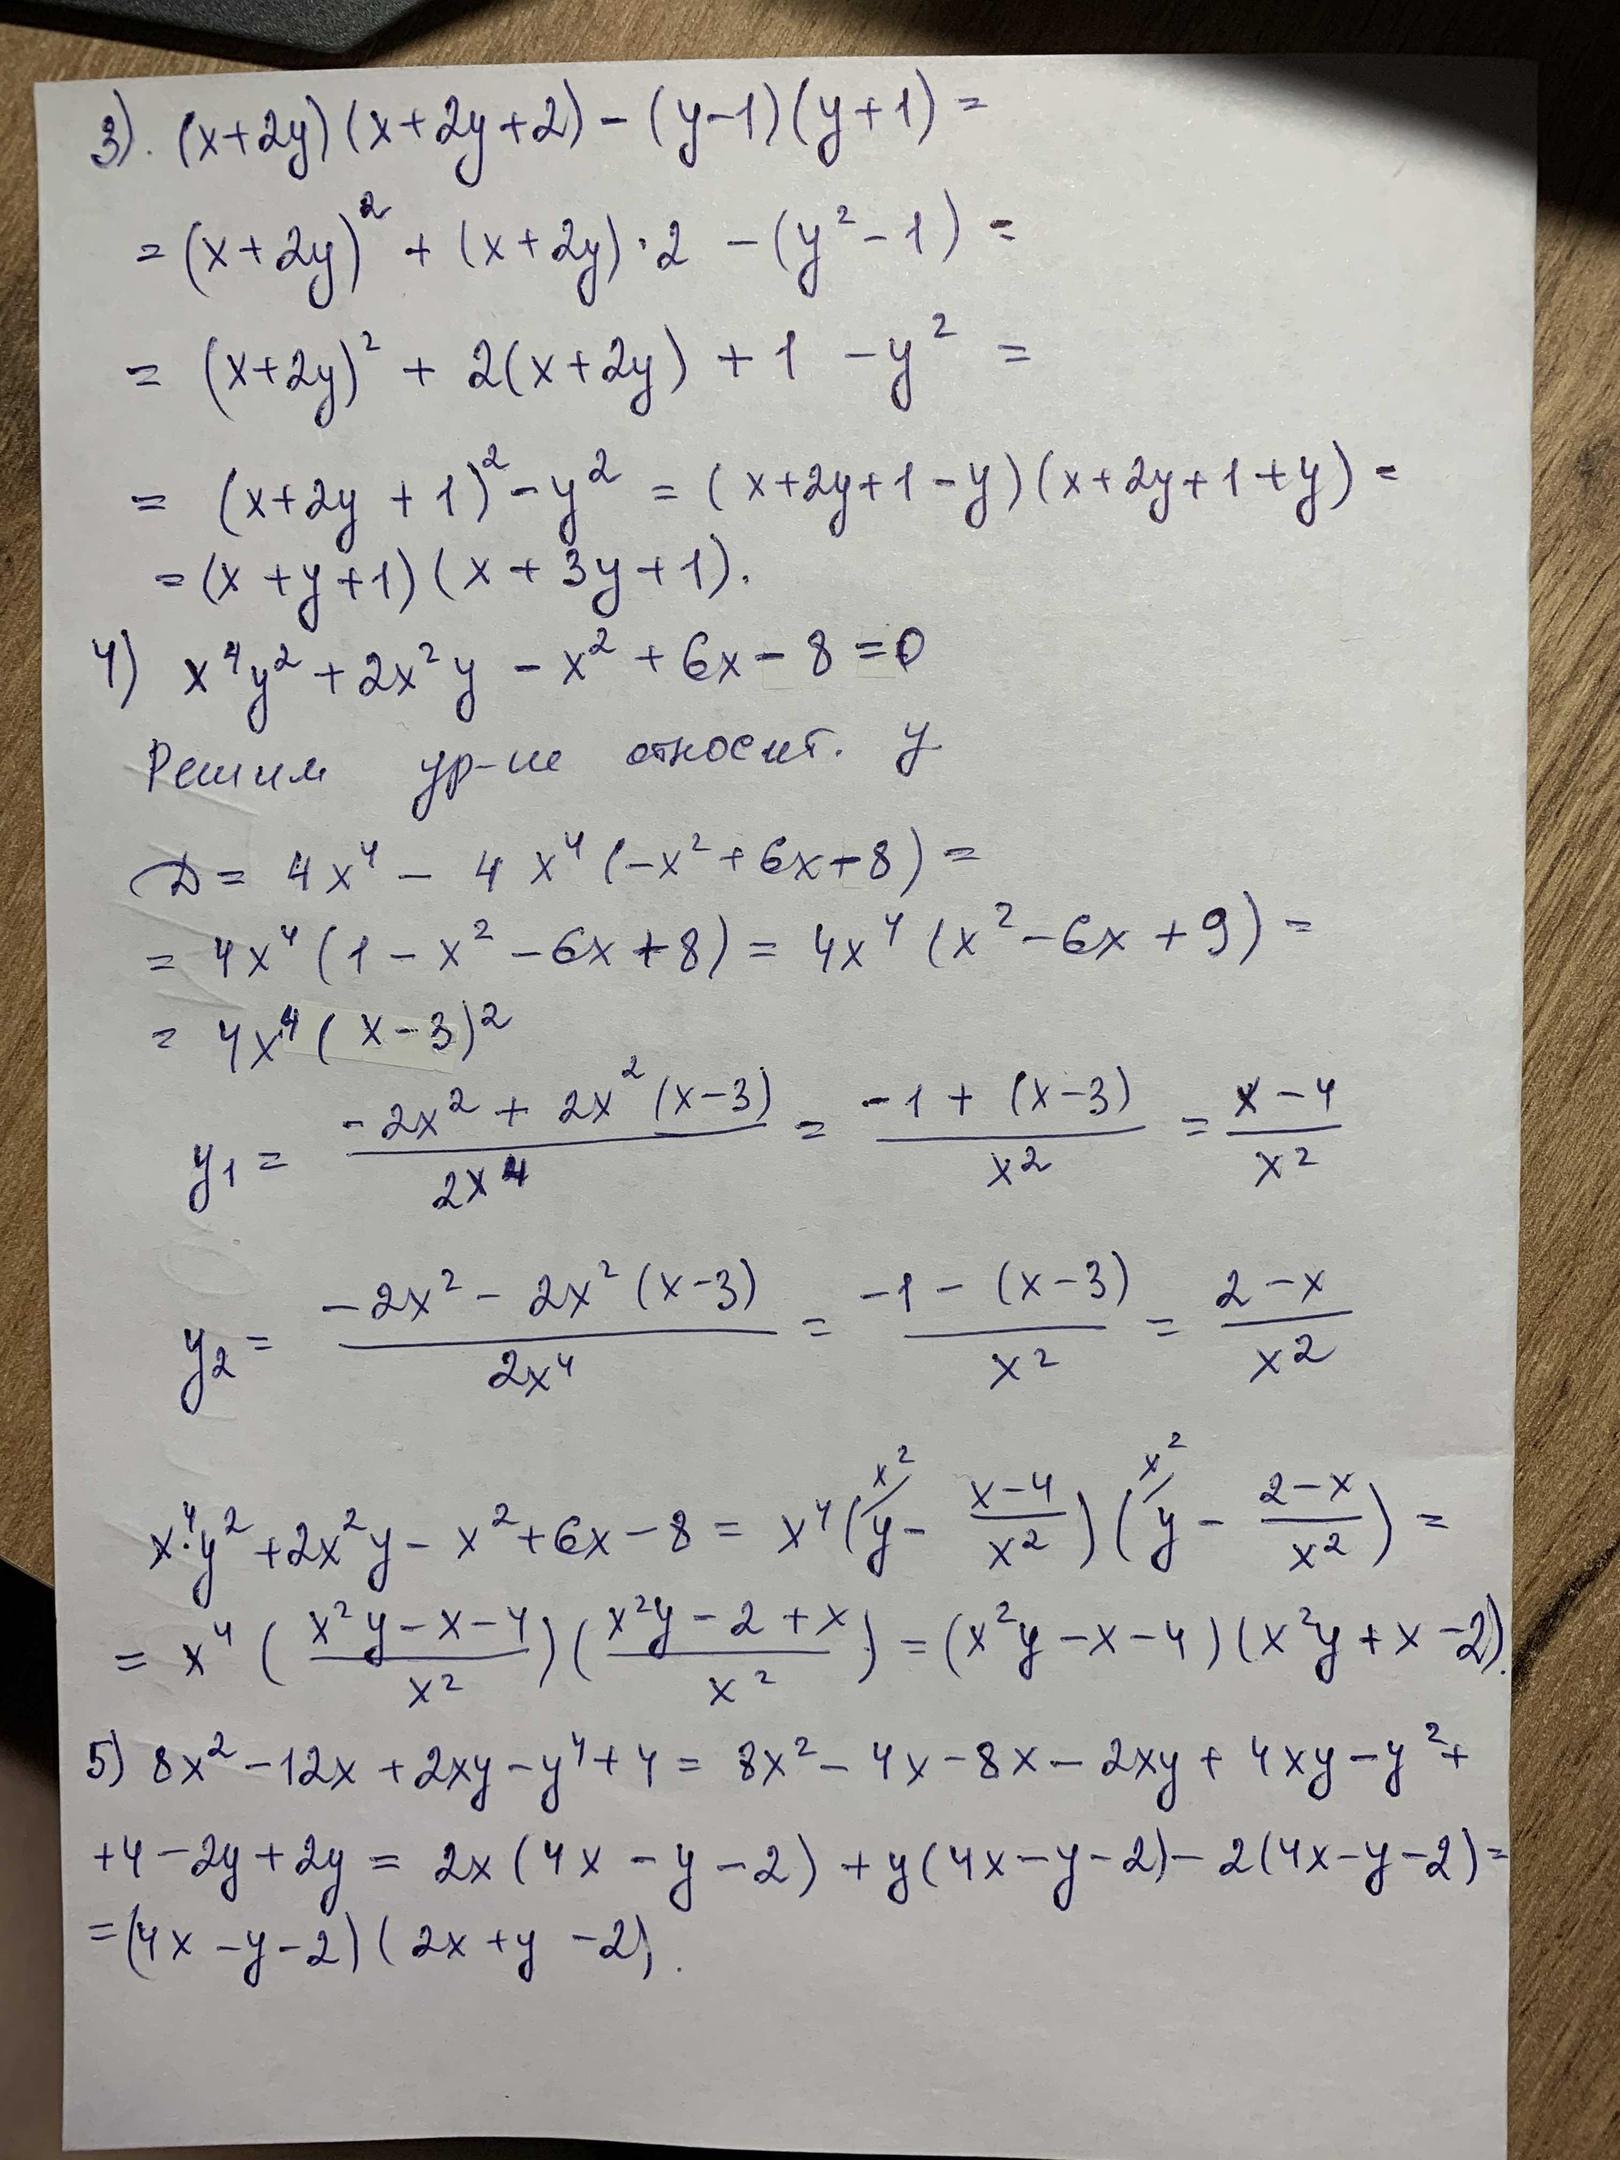 3). (x+2y)(x+2y+2)-(y-1)(y+1)=
=(x+2y)²+(x+2y)·2-(y²-1)=
=(x+2y)²+2(x+2y)+1-y²=
=(x+2y+1)²-y²=(x+2y+1-y)(x+2y+1+y)=
=(x+y+1)(x+3y+1).
4) x⁴y²+2x²y-x²+6x-8=0
Решим ур-ие относит. y
D=4x⁴-4x⁴(-x²+6x-8)=
=4x⁴(1-x²-6x+8)=4x⁴(x²-6x+9)=
=4x⁴(x-3)²
y₁=(-2x²+2x²(x-3))/(2x⁴)=(-1+(x-3))/x²=(x-4)/x²
y₂=(-2x²-2x²(x-3))/(2x⁴)=(-1-(x-3))/x²=(2-x)/x²
x² x²
x⁴·y²+2x²y-x²+6x-8=x⁴(y-(x-4)/x²)(y-(2-x)/x²)=
=x⁴((x²y-x-4)/x²)((x²y-2+x)/x²)=(x²y-x-4)(x²y+x-2).
5) 8x²-12x+2xy-y⁴+4=8x²-4x-8x-2xy+4xy-y²+
+4-2y+2y=2x(4x-y-2)+y(4x-y-2)-2(4x-y-2)=
=(4x-y-2)(2x+y-2).